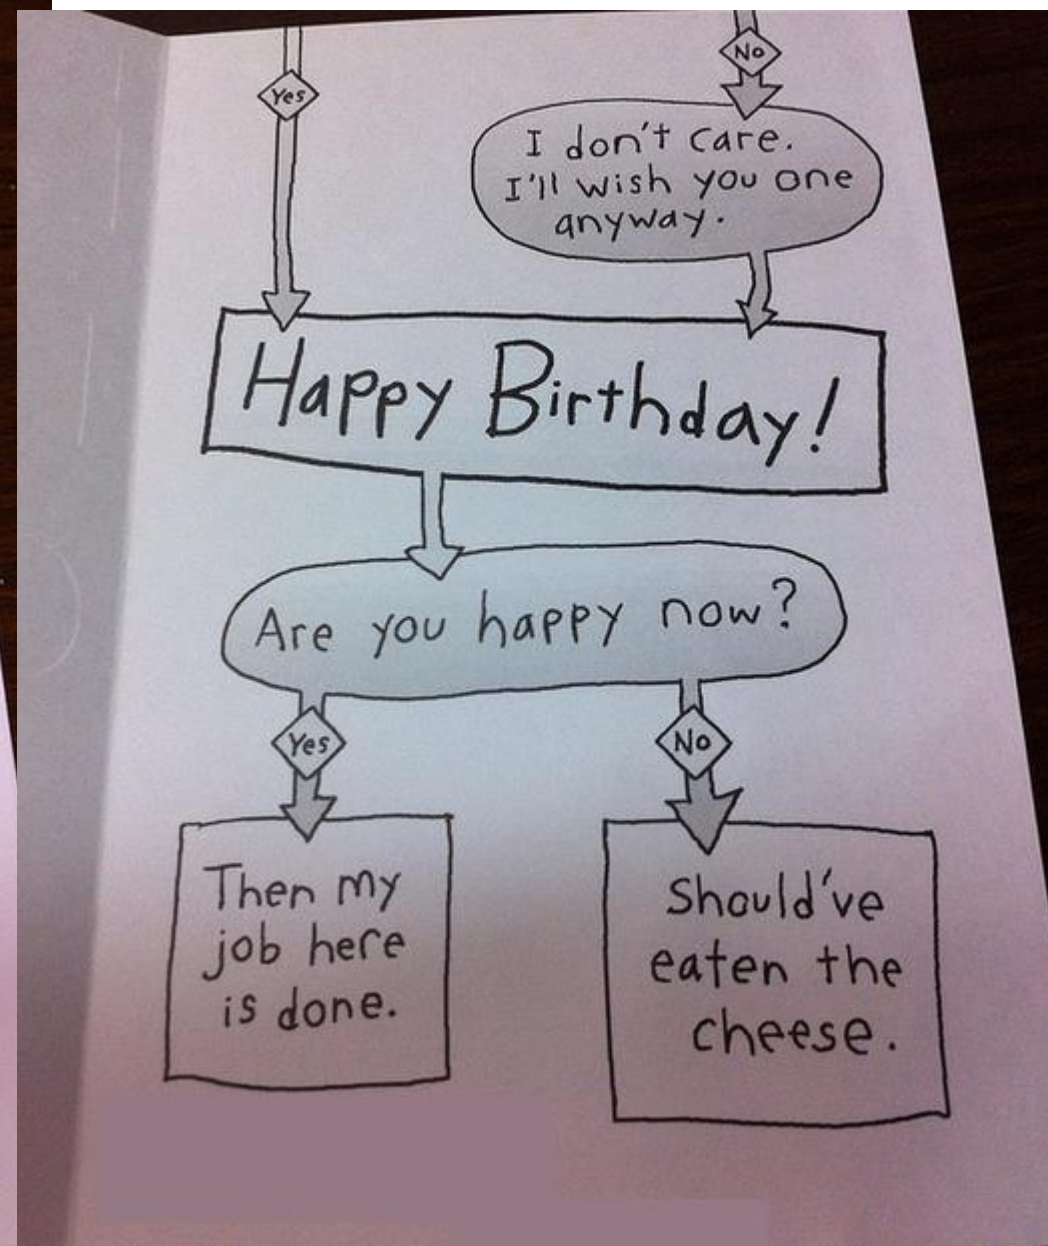 No
Yes
I don't care.
I'll wish you one
anyway.
Happy Birthday!
Are you happy now?
Yes
No
Then my
job here
is done.
Should've
eaten the
cheese.